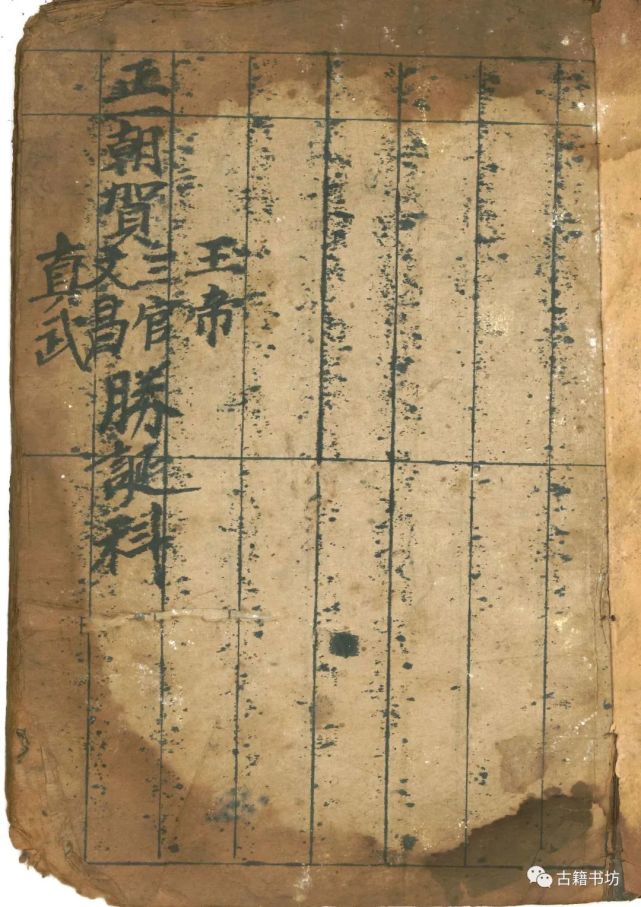 正一朝賀
玉帝
三官
文昌
真武
勝誕科
古籍书坊